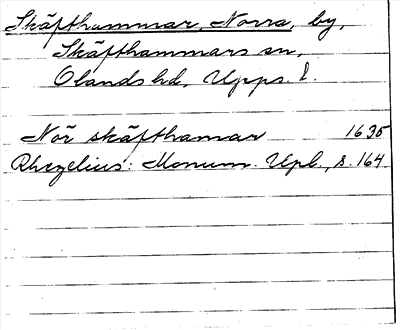 Skäfthammar, Norra, by,
Skäfthammars sn,
Olands hd, Upps l.
Nör skäfthamar 1635
Rhezelius: Monum. Upl., s. 164